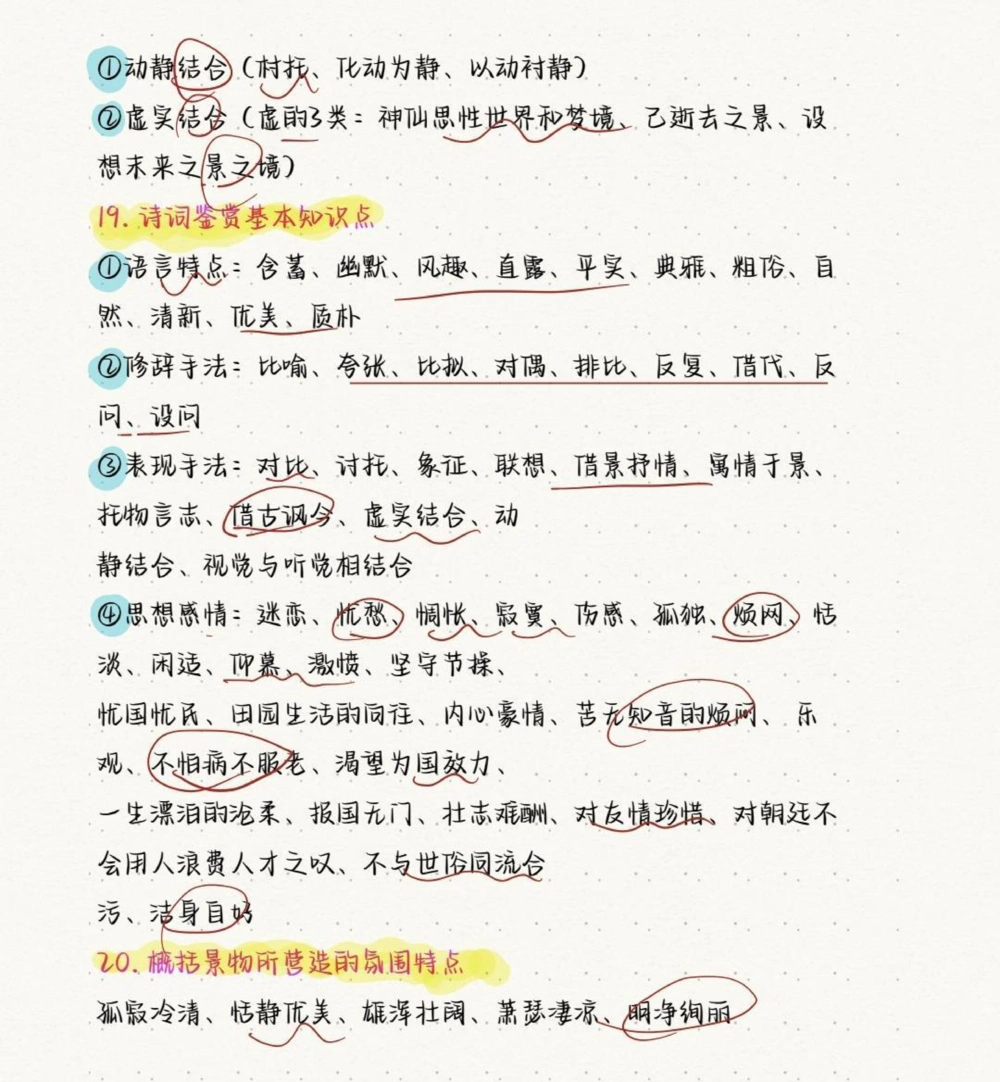 ①动静结合（村托、化动为静、以动衬静）
②虚实结合（虚的3类：神仙思性世界和梦境、己逝去之景、设
想未来之景之境）
19.诗词鉴赏基本知识点
①语言特点：含蓄、幽默、风趣、直露、平实、典雅、粗俗、自
然、清新、优美、质朴
②修辞手法：比喻、夸张、比拟、对偶、排比、反复、借代、反
问、设问
③表现手法：对比、讨托、象征、联想、借景抒情、寓情于景、
托物言志、借古讽今、虚实结合、动
静结合、视觉与听觉相结合
④思想感情：迷恋、忧愁、惆怅、寂寞、伤感、孤独、烦网、恬
淡、闲适、仰慕、激愤、坚守节操、
忧国忧民、田园生活的向往、内心豪情、苦无知音的烦闷、乐
观、不怕病不服老、渴望为国效力、
一生漂泊的沧柔、报国无门、壮志难酬、对友情珍惜、对朝廷不
会用人浪费人才之叹、不与世俗同流合
污、洁身自好
20.概括景物所营造的氛围特点
孤寂冷清、恬静优美、雄浑壮阔、萧瑟凄凉、明净绚丽